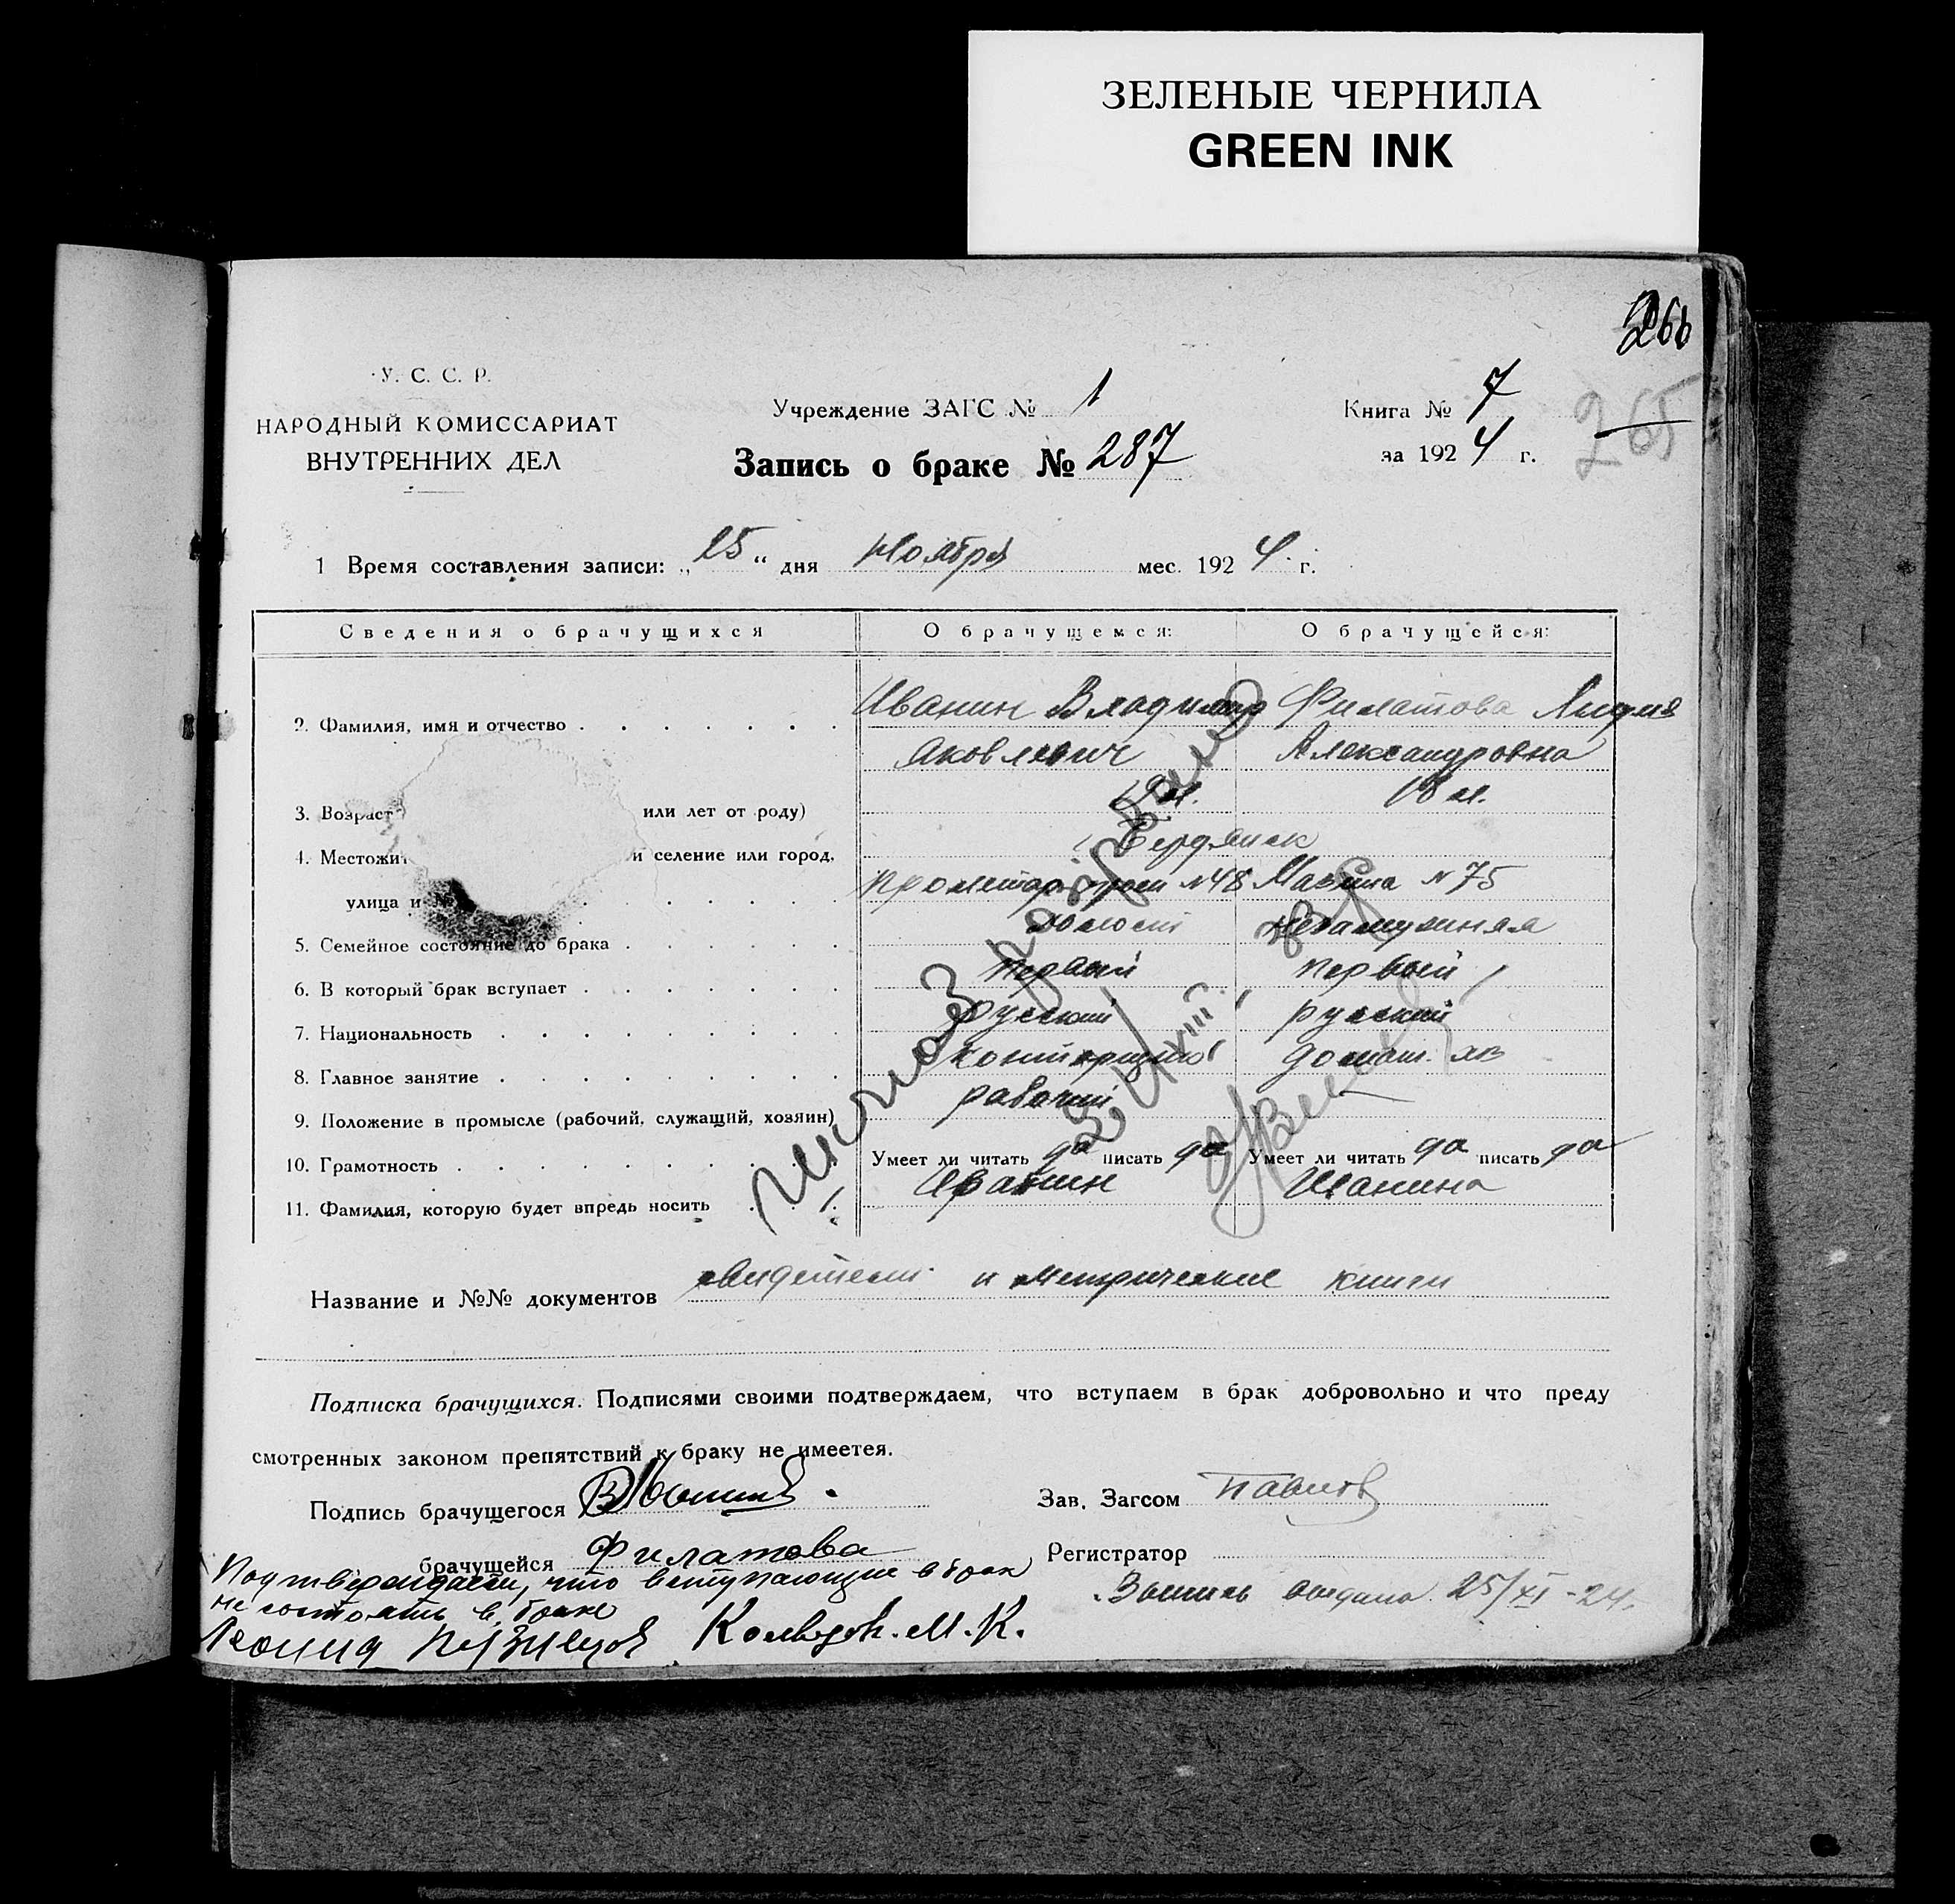 ЗЕЛЕНЫЕ ЧЕРНИЛА
GREEN INK
266
265
У. С. С. Р.
НАРОДНЫЙ КОМИССАРИАТ
ВНУТРЕННИХ ДЕЛ
Учреждение ЗАГС № 1
Запись о браке № 287
Книга № 7
за 1924 г.
1 Время составления записи: „25“ дня Ноября мес. 1924 г.
Сведения о брачущихся О брачущемся: О брачущейся:
2. Фамилия, имя и отчество Иванин Владимир Филатова Лидия
Яковлевич Александровна
3. Возраст или лет от роду) 19 л. 18 л.
4. Местожит и селение или город, Бердянск
улица и № Пролетар. № 48 Мазина № 75
5. Семейное состояние до брака холост незамужняя
6. В который брак вступает Первый первый
7. Национальность русский русский
8. Главное занятие домаш. хоз
9. Положение в промысле (рабочий, служащий, хозяин) рабочий —
10. Грамотность Умеет ли читать да писать да Умеет ли читать да писать да
11. Фамилия, которую будет впредь носить Иванин Иванина
Название и №№ документов свидетели и метрические книги
Подписка брачущихся. Подписями своими подтверждаем, что вступаем в брак добровольно и что преду
смотренных законом препятствий к браку не имеетея.
Подпись брачущегося
Зав. Загсом Павлов
брачущейся Филатова
Регистратор
Подтверждаем, что вступающие в брак
не состоять в браке
выдана 25/XI-24.
М. К.